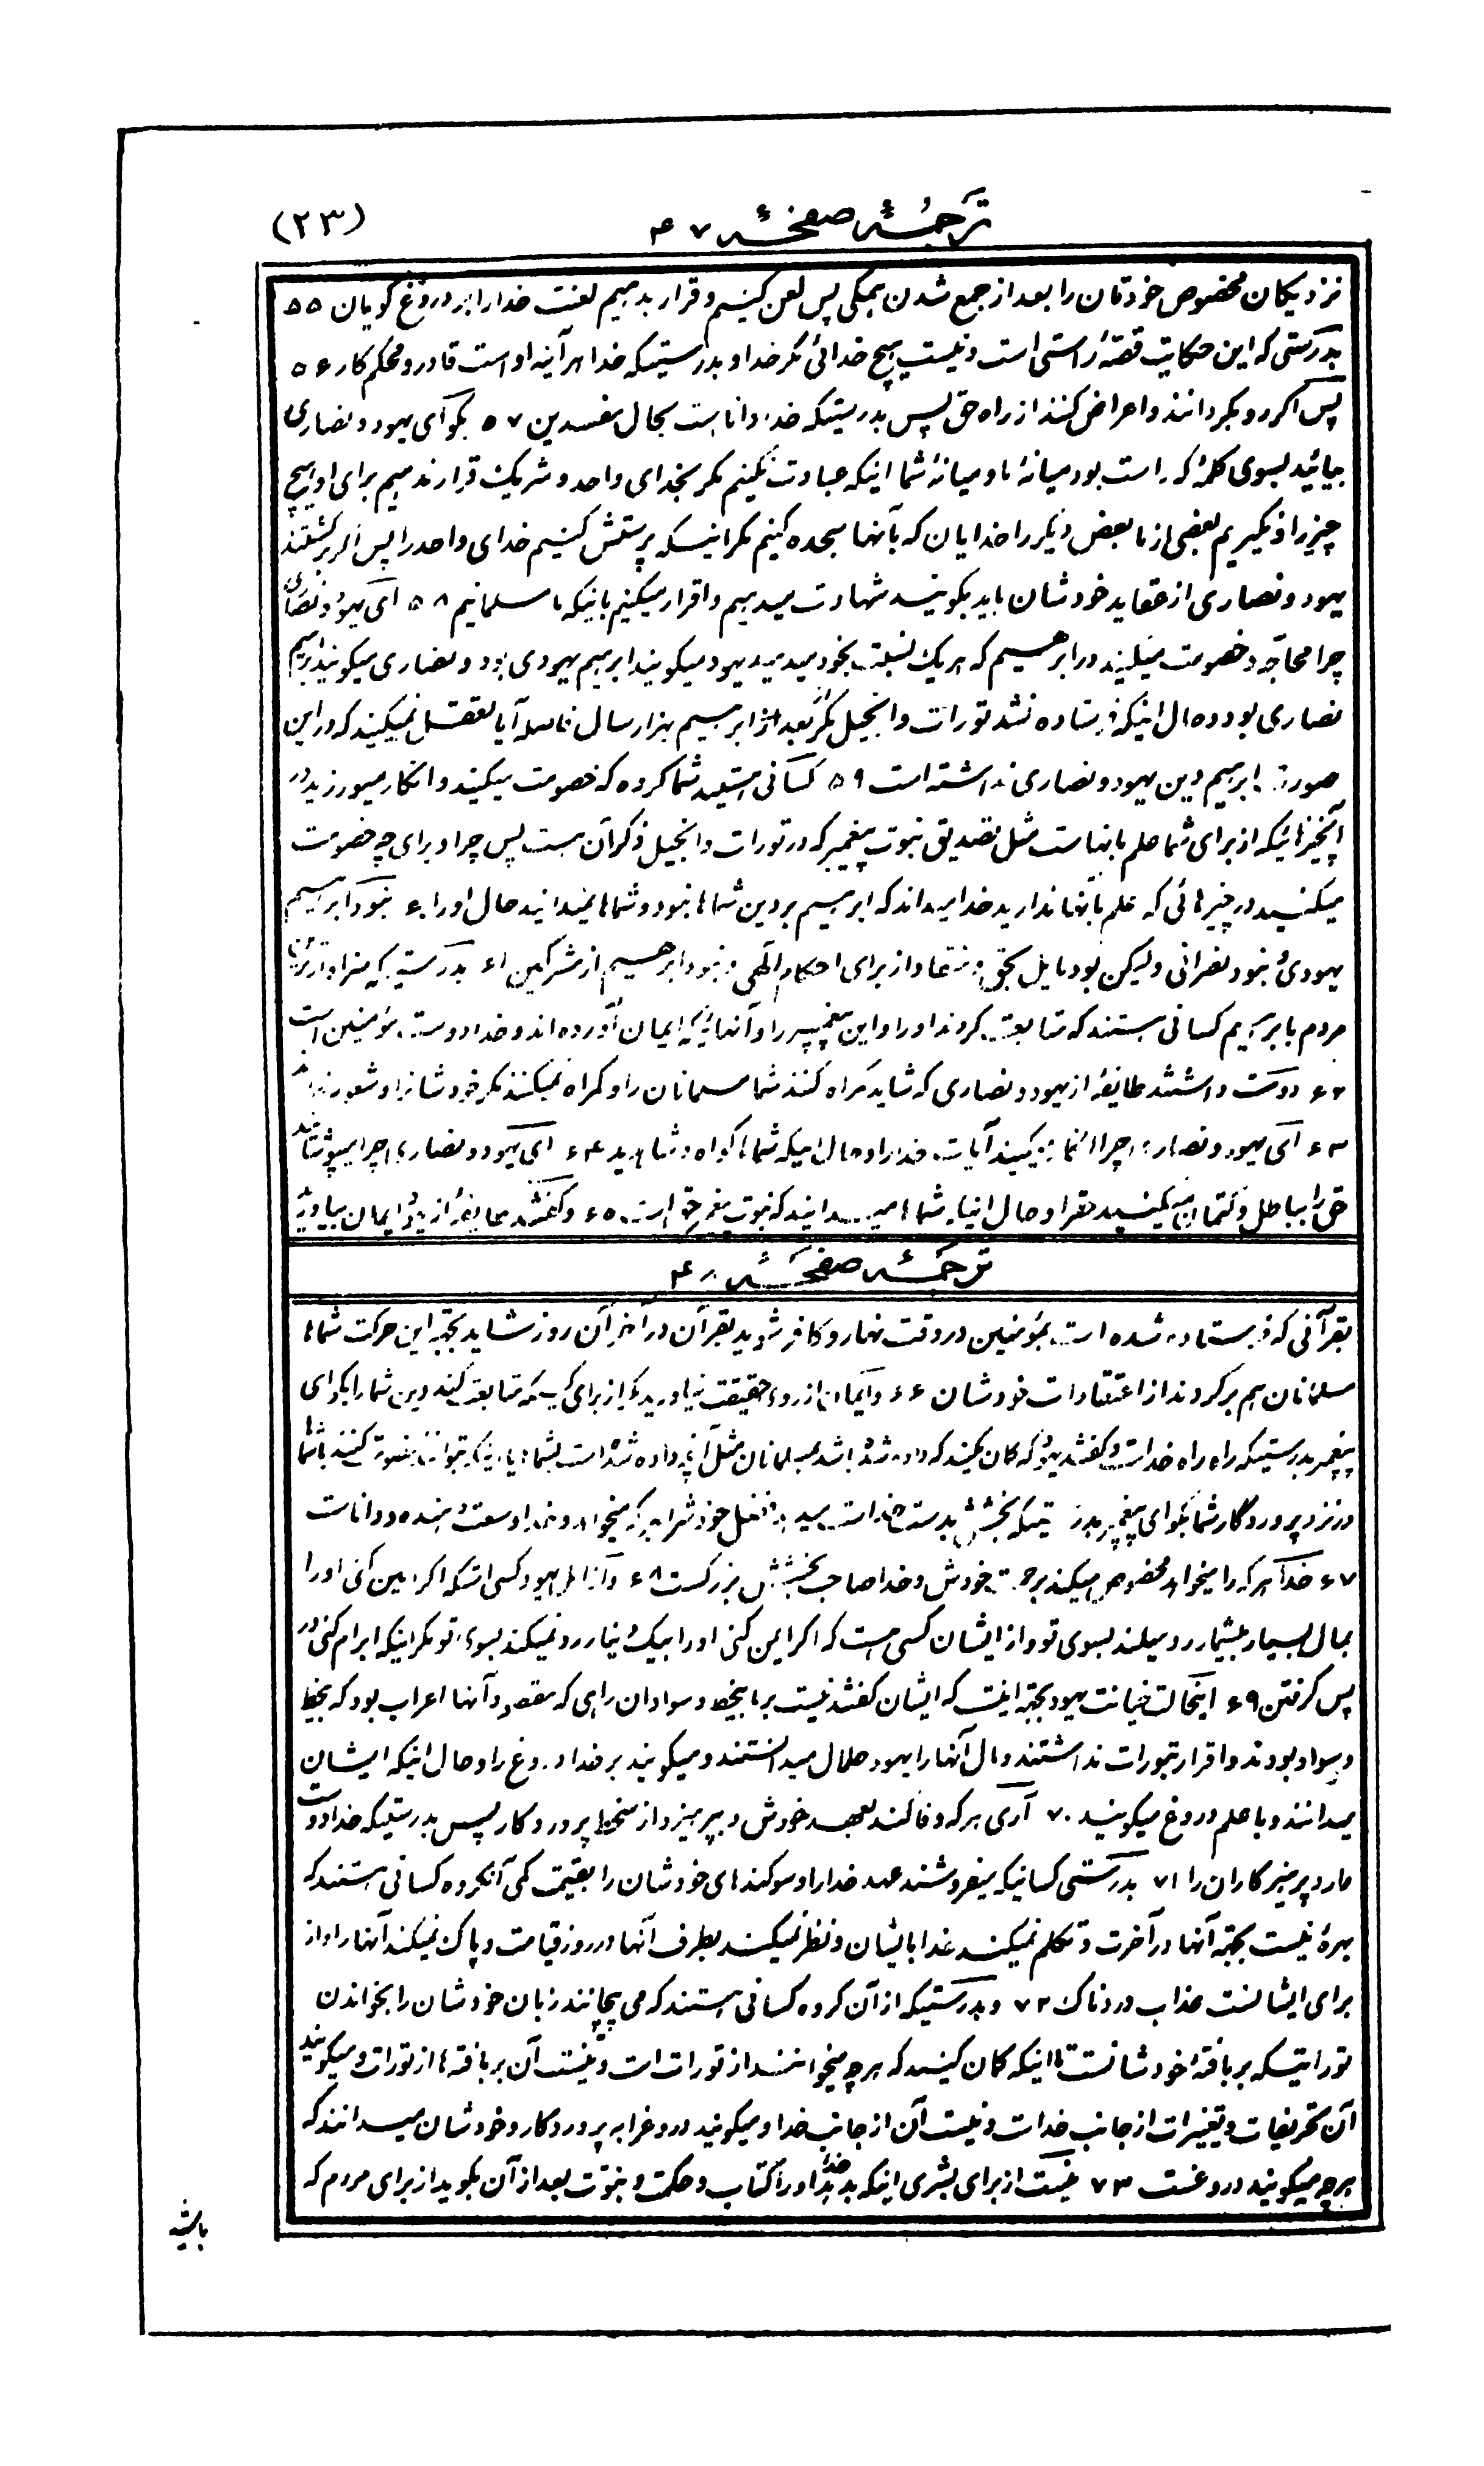 ترجمهٔ صفحهٔ ۴۷ (۲۳)
نزدیکان مخصوص خودتان را بعد از جمع شدن همکی پس لعن کنیم و قرار بدهیم لعنت خدا را بر دروغ کویان ۵۵
بدرستی که این حکایت قصّهٔ راستی است و نیست هیچ خدائی مکر خدا و بدرستیکه خدا هر آینه او است قادر و محکم کار ۵۶
پس اکر رو بکردانند و اعراض کنند از راه حق پس بدرستیکه خدا دانا است بحال مفسدین ۵۷ بکو ای یهود و نصاری
بیائید بسوی کلمهٔ که راست بود میانهٔ ما و میانهٔ شما اینکه عبادت نکنیم مکر بخدای واحد و شریک قرار ندهیم برای او هیچ
چیز را و نکیریم بعضی از ما بعض دیکر را خدایان که بآنها سجده کنیم مکر اینکه پرستش کنیم خدای واحد را پس اکر برکشتند
یهود و نصاری از عقاید خودشان باید بکویند شهادت میدهیم و اقرار میکنیم باینکه ما مسلمانیم ۵۸ ای یهود و نصاری
چرا محاجّه و خصومت میکنید در ابرهیم که هر یک نسبت بخود میدهید یهود میکویند ابرهیم یهودی بود و نصاری میکویند ابرهیم
نصاری بود و حال اینکه فرستاده نشد تورات و انجیل مکر بعد از ابرهیم بهزار سال فاصله آیا تعقل نمیکنید که در این
صورت ابرهیم دین یهود و نصاری نداشته است ۵۹ کسانی هستید شما کروه که خصومت میکنید و انکار میورزید در
آنچیزهائیکه از برای شما علم بانها است مثل تصدیق نبوت پیغمبر که در تورات و انجیل ذکر آن هست پس چرا و برای چه خصومت
میکنید در چیزهائی که علم بآنها ندارید خدا میداند که ابرهیم بر دین شماها نبود و شماها نمیدانید حال او را ۶۰ نبود ابرهیم
یهودی و نبود نصرانی ولیکن بود مایل بحق و منقاد از برای احکام الهی و نبود ابرهیم از مشرکین ۶۱ بدرستیکه سزاوارترین
مردم بابرهیم کسانی هستند که متابعت کردند او را و این پیغمبر را و آنهائیکه ایمان آورده‌اند و خدا دوست مؤمنین است
۶۲ دوست داشتند طایفهٔ از یهود و نصاری که شاید کمراه کنند شما مسلمانان را و کمراه نمیکنند مکر خودشانرا و شعور ندارند
۶۳ ای یهود و نصاری چرا انکار میکنید آیات خدا را و حال اینکه شماها کواه و شاهدید ۶۴ ای یهود و نصاری چرا میپوشانید
حق را بباطل و کتمان میکنید حق را و حال اینکه شماها میدانید که نبوت پیغمبر حق است ۶۵ و کفتند طایفهٔ از یهود ایمان بیاورید
ترجمهٔ صفحهٔ ۴۸
بقرآنی که فرستاده شده است بمؤمنین در وقت نهار و کافر شوید بقرآن در آخر آن روز شاید بجهة این حرکت شماها
مسلمانان هم برکردند از اعتقادات خودشان ۶۶ و ایمان از روی حقیقت نیاورید مکر از برای کسیکه متابعت کند دین شما را بکو ای
پیغمبر بدرستیکه راه راه خدا است و کفتند یهود که کمان نکنید که داده شده باشد بمسلمانان مثل آنچه داده شده است بشما یا اینکه بتوانند خصومت کنند با شما
در نزد پروردکار شما بکو ای پیغمبر بدرستیکه بخشش بدست خدا است میدهد فضل خودش را بهرکه میخواهد و خدا وسعت دهنده و دانا است
۶۷ خدا هر که را میخواهد مخصوص میکند برحمت خودش و خدا صاحب بخشش بزرکست ۶۸ و از اهل یهود کسی است که اکر امین کنی او را
بمال بسیار بیشمار رد میکند بسوی تو و از ایشان کسی هست که اکر امین کنی او را بیک دینار رد نمیکند بسوی تو مکر اینکه ابرام کنی در
پس کرفتن ۶۹ اینحالت خیانت یهود بجهة اینست که ایشان کفتند نیست بر ما بیخط و سوادان راهی که مقصود آنها اعراب بود که بیخط
و سواد بودند و اقرار بتورات نداشتند و مال آنها را یهود حلال میدانستند و میکویند بر خدا دروغ را و حال اینکه ایشان
میدانند و با علم دروغ میکویند ۷۰ آری هر که وفا کند بعهد خودش و بپرهیزد از سخط پروردکار پس بدرستیکه خدا دوست
دارد پرهیزکاران را ۷۱ بدرستی کسانیکه میفروشند عهد خدا را و سوکندهای خودشان را بقیمت کمی آنکروه کسانی هستند که
بهرهٔ نیست بجهة آنها در آخرت و تکلم نمیکند خدا بایشان و نظر نمیکند بطرف آنها در روز قیامت و پاک نمیکند آنها را و از
برای ایشانست عذاب دردناک ۷۲ و بدرستیکه از آن کروه کسانی هستند که می‌پیچانند زبان خودشان را بخواندن
توراتیکه بربافتهٔ خودشانست تا اینکه کمان کنید که هر چه میخوانند از تورات است و نیست آن بربافته‌ها از تورات و میکویند
آن تحریفات و تغییرات از جانب خدا است و نیست آن از جانب خدا و میکویند دروغ را به پروردکار و خودشان میدانند که
هرچه میکویند دروغست ۷۳ نیست از برای بشری اینکه بدهد خدا او را کتاب و حکمت و نبوّت بعد از آن بکوید از برای مردم که
باشید